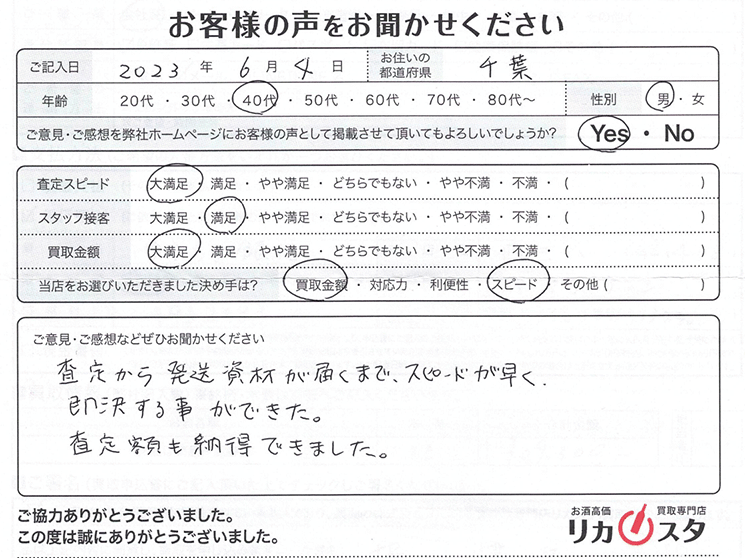 お客様の声をお聞かせください
ご記入日 2023 年 6 月 4 日 お住いの都道府県 千葉
年齢 20代 ・ 30代 ・ 40代 ・ 50代 ・ 60代 ・ 70代 ・ 80代〜 性別 男 ・ 女
ご意見・ご感想を弊社ホームページにお客様の声として掲載させて頂いてもよろしいでしょうか? Yes ・ No
査定スピード 大満足 ・ 満足 ・ やや満足 ・ どちらでもない ・ やや不満 ・ 不満 ・ ( )
スタッフ接客 大満足 ・ 満足 ・ やや満足 ・ どちらでもない ・ やや不満 ・ 不満 ・ ( )
買取金額 大満足 ・ 満足 ・ やや満足 ・ どちらでもない ・ やや不満 ・ 不満 ・ ( )
当店をお選びいただきました決め手は? 買取金額 ・ 対応力 ・ 利便性 ・ スピード ・ その他 ( )
ご意見・ご感想などぜひお聞かせください
査定から発送資材が届くまで、スピードが早く、
即決する事ができた。
査定額も納得できました。
ご協力ありがとうございました。
この度は誠にありがとうございました。
お酒高価 買取専門店
リカスタ